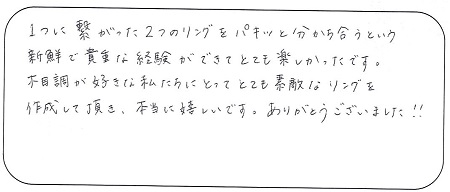 1つに繋がった2つのリングをパキッと分かち合うという
新鮮で貴重な経験ができてとても楽しかったです。
木目調が好きな私たちにとってとても素敵なリングを
作成して頂き、本当に嬉しいです。ありがとうございました!!